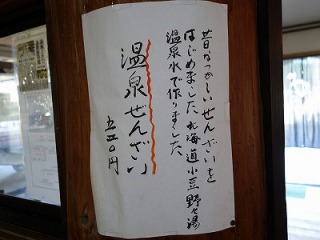 昔なつかしいぜんざいを
はじめました。北海道小豆野々湯
温泉水で作りました。
温泉ぜんざい
五二〇円